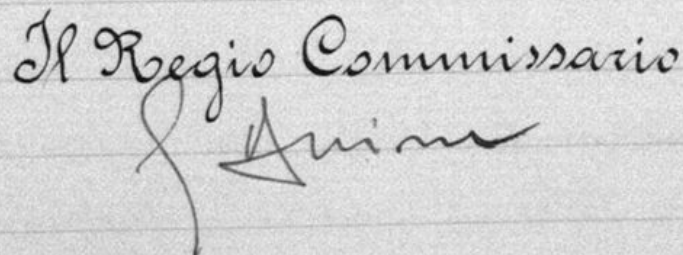 Il Regio Commissario